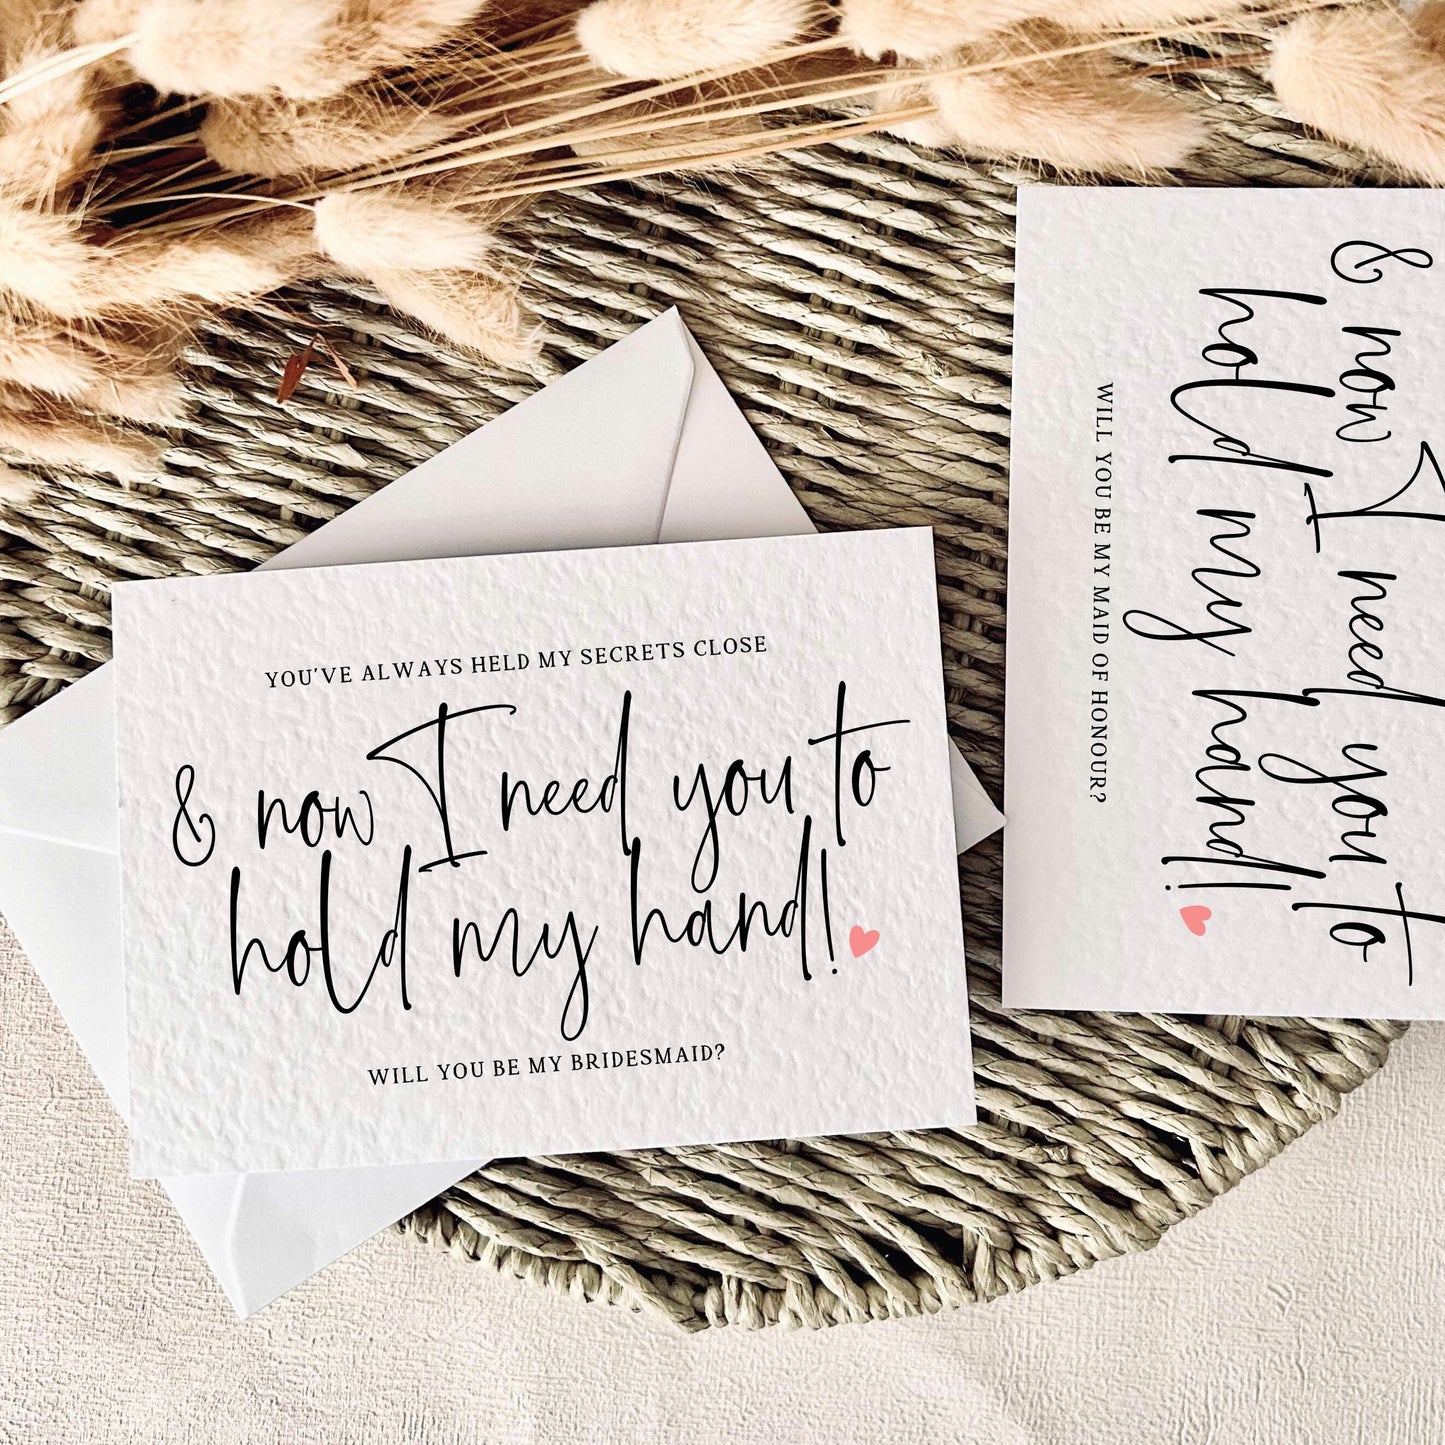 YOU'VE ALWAYS HELD MY SECRETS CLOSE
& now I need you to
hold my hand!
WILL YOU BE MY BRIDESMAID?
& now I need you to
hold my hand!
WILL YOU BE MY MAID OF HONOUR?